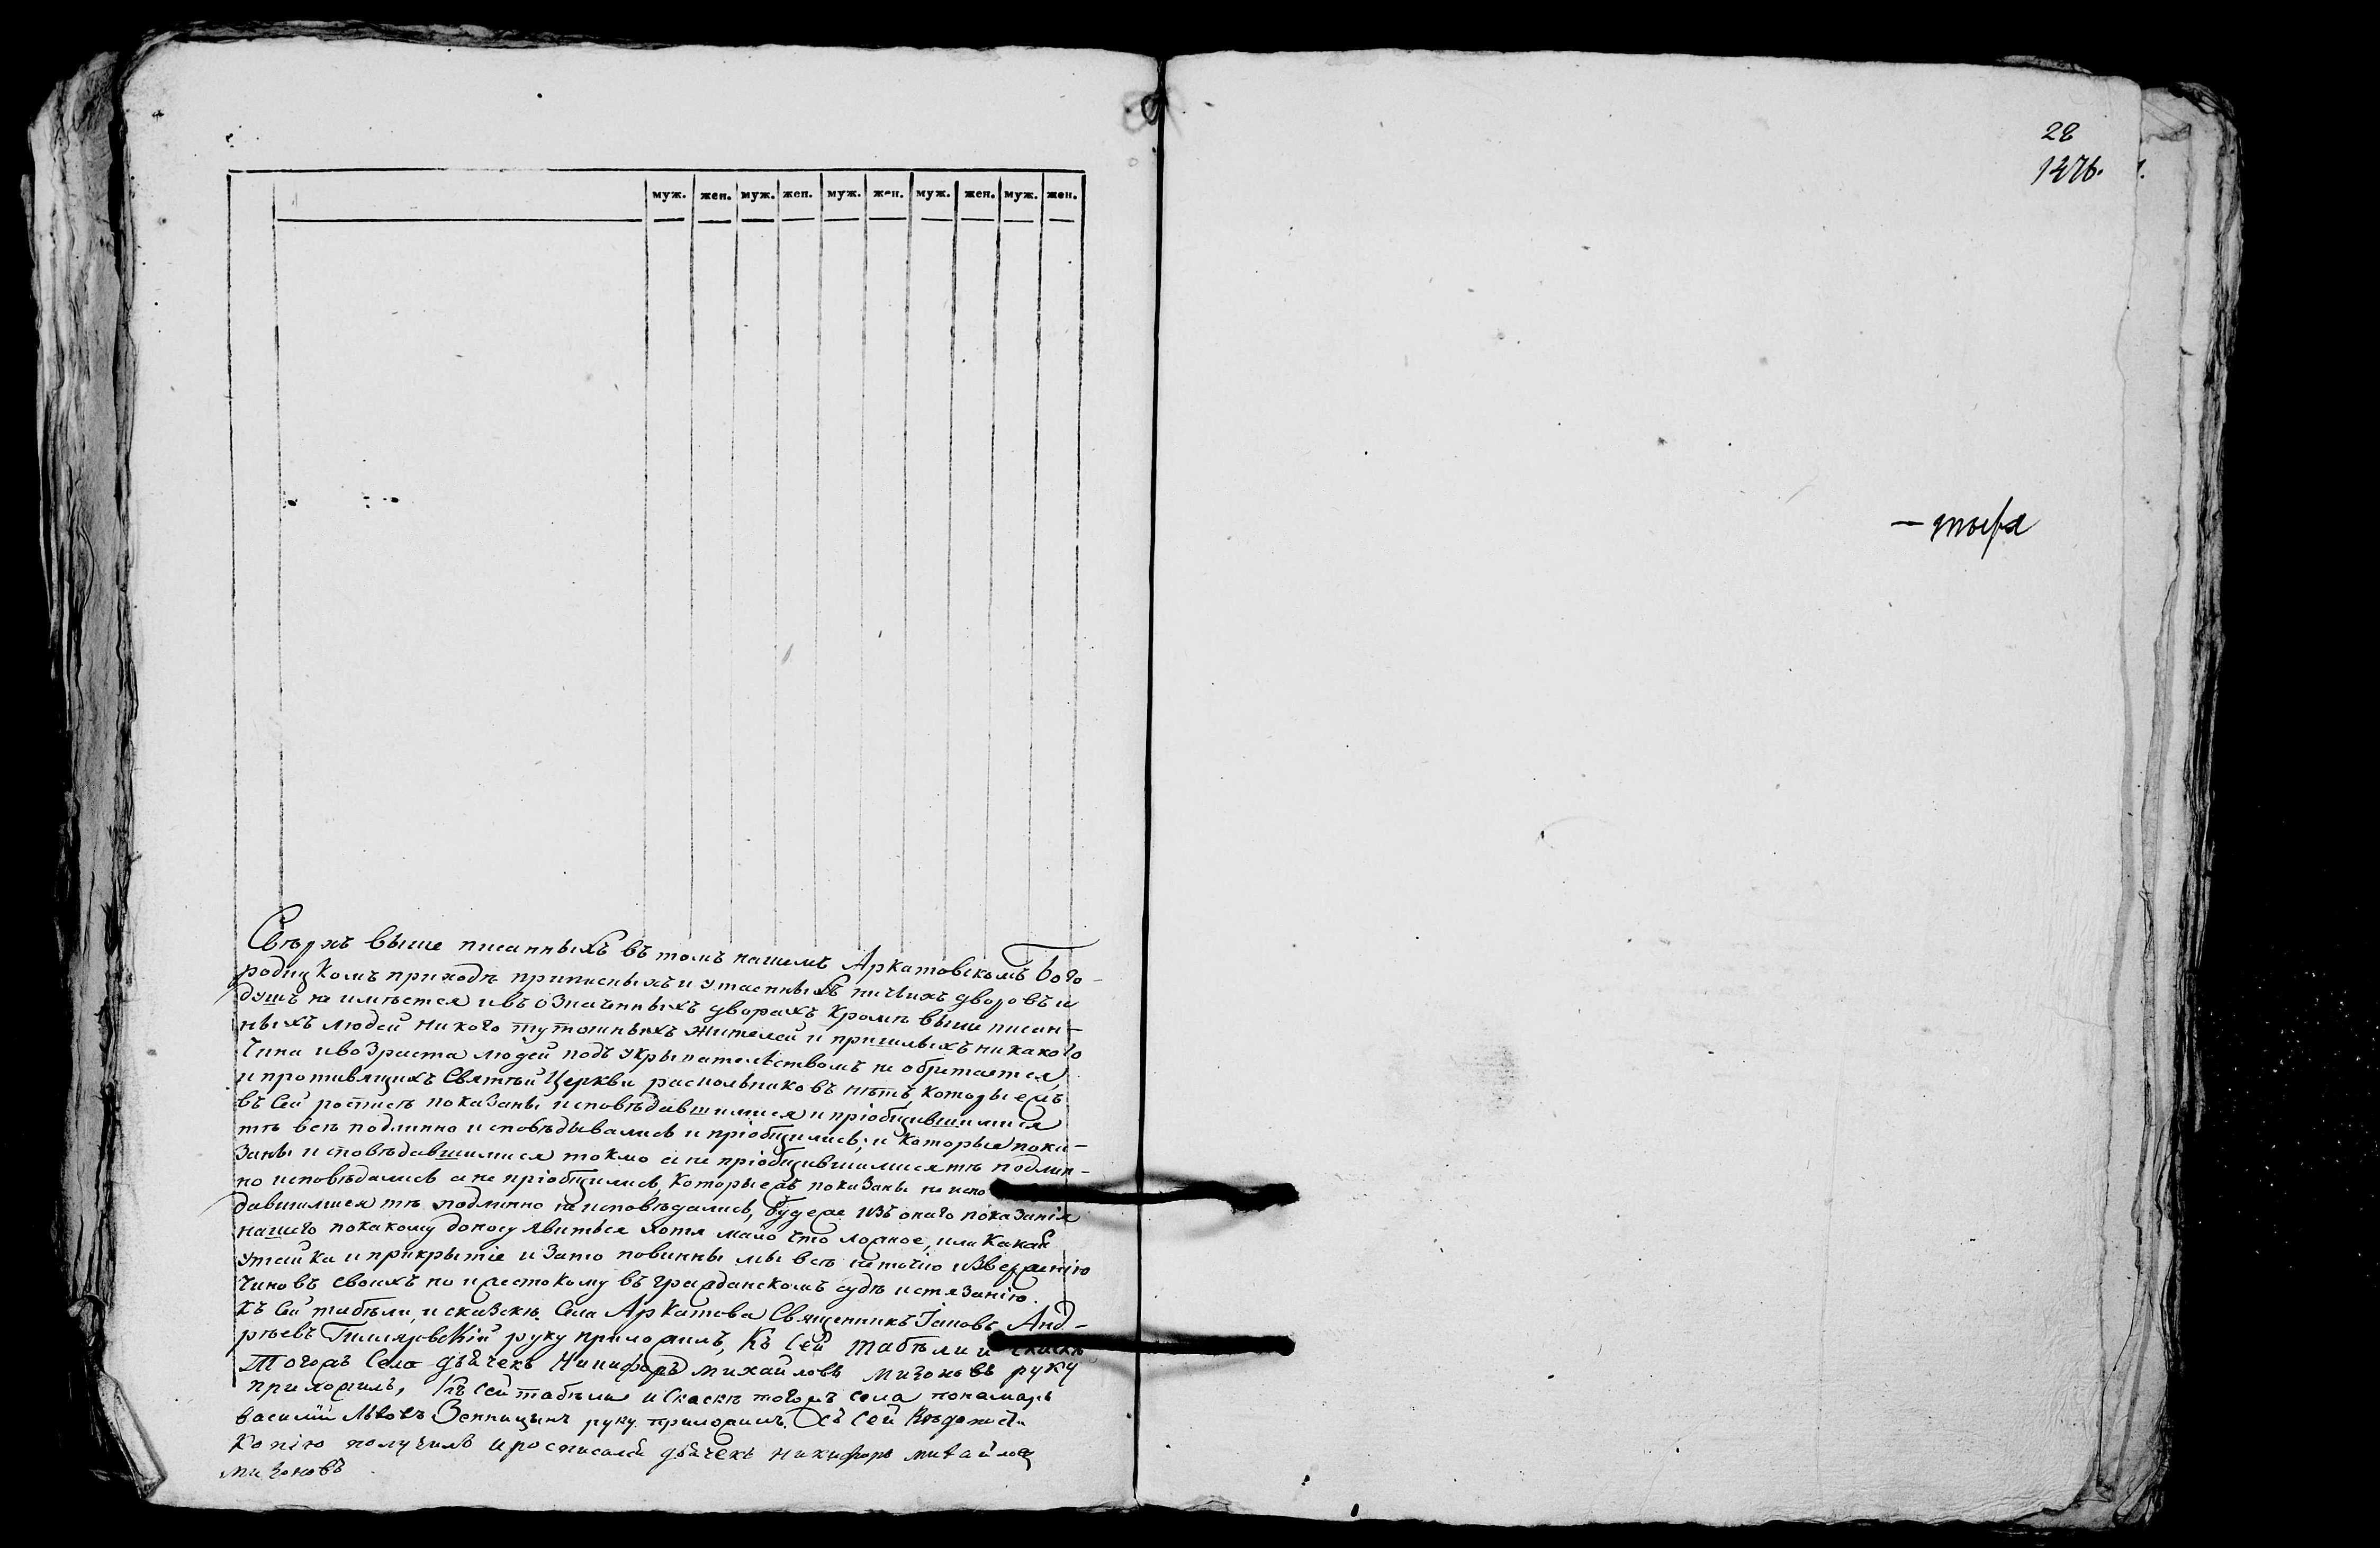 муж. жен. муж. жен. муж. жен. муж. жен. муж. жен.
Сверхъ выше писанныхъ въ томъ нашемъ Аркатовскомъ Бого-
родицкомъ приходѣ приписныхъ и утаенныхъ ничьихъ дворовъ и
душъ не имѣется и въ означенныхъ дворахъ кромѣ выше писан-
ныхъ людей никого тутошныхъ жителей и пришлыхъ никакого
чина и возраста людей подъ укрывательствомъ не обретается,
и противящихъ Святѣй Церкви раскольниковъ нѣтъ, которыежъ
въ сей росписѣ показаны исповѣдавшимися и пріобщившимися
тѣ всѣ подлинно исповѣдывались и пріобщились; и которые пока-
заны исповѣдавшимися токмо а не пріобщившимися тѣ подлин-
но исповѣдались а не пріобщились, которыежъ показаны не испо
давшимися тѣ подлинно не исповѣдались, будеже изъ онаго показанія
нашего покакому доносу явиться хотя мало что ложное, или какая
утайка и прикрытіе и за то повинны мы всѣ не точію изверженію
чиновъ своихъ но и жестокому въ гражданскомъ судѣ истязанію.
Къ сей табѣли, и сказскѣ. Села Аркатова Священникъ Іаковъ Анд-
рѣевъ Гиляровскій руку приложилъ, Къ сей табѣли и скаскѣ
тогожъ села дьячекъ Никифоръ Михайловъ Мизоновъ руку
приложилъ, Къ сей табѣли и скаскѣ тогожъ села понамарь
василій Львовъ руку приложилъ. Съ сей вѣдомости
копію получилъ и росписался дьячекъ никифоръ михайловъ
мизоновъ
28
1376.